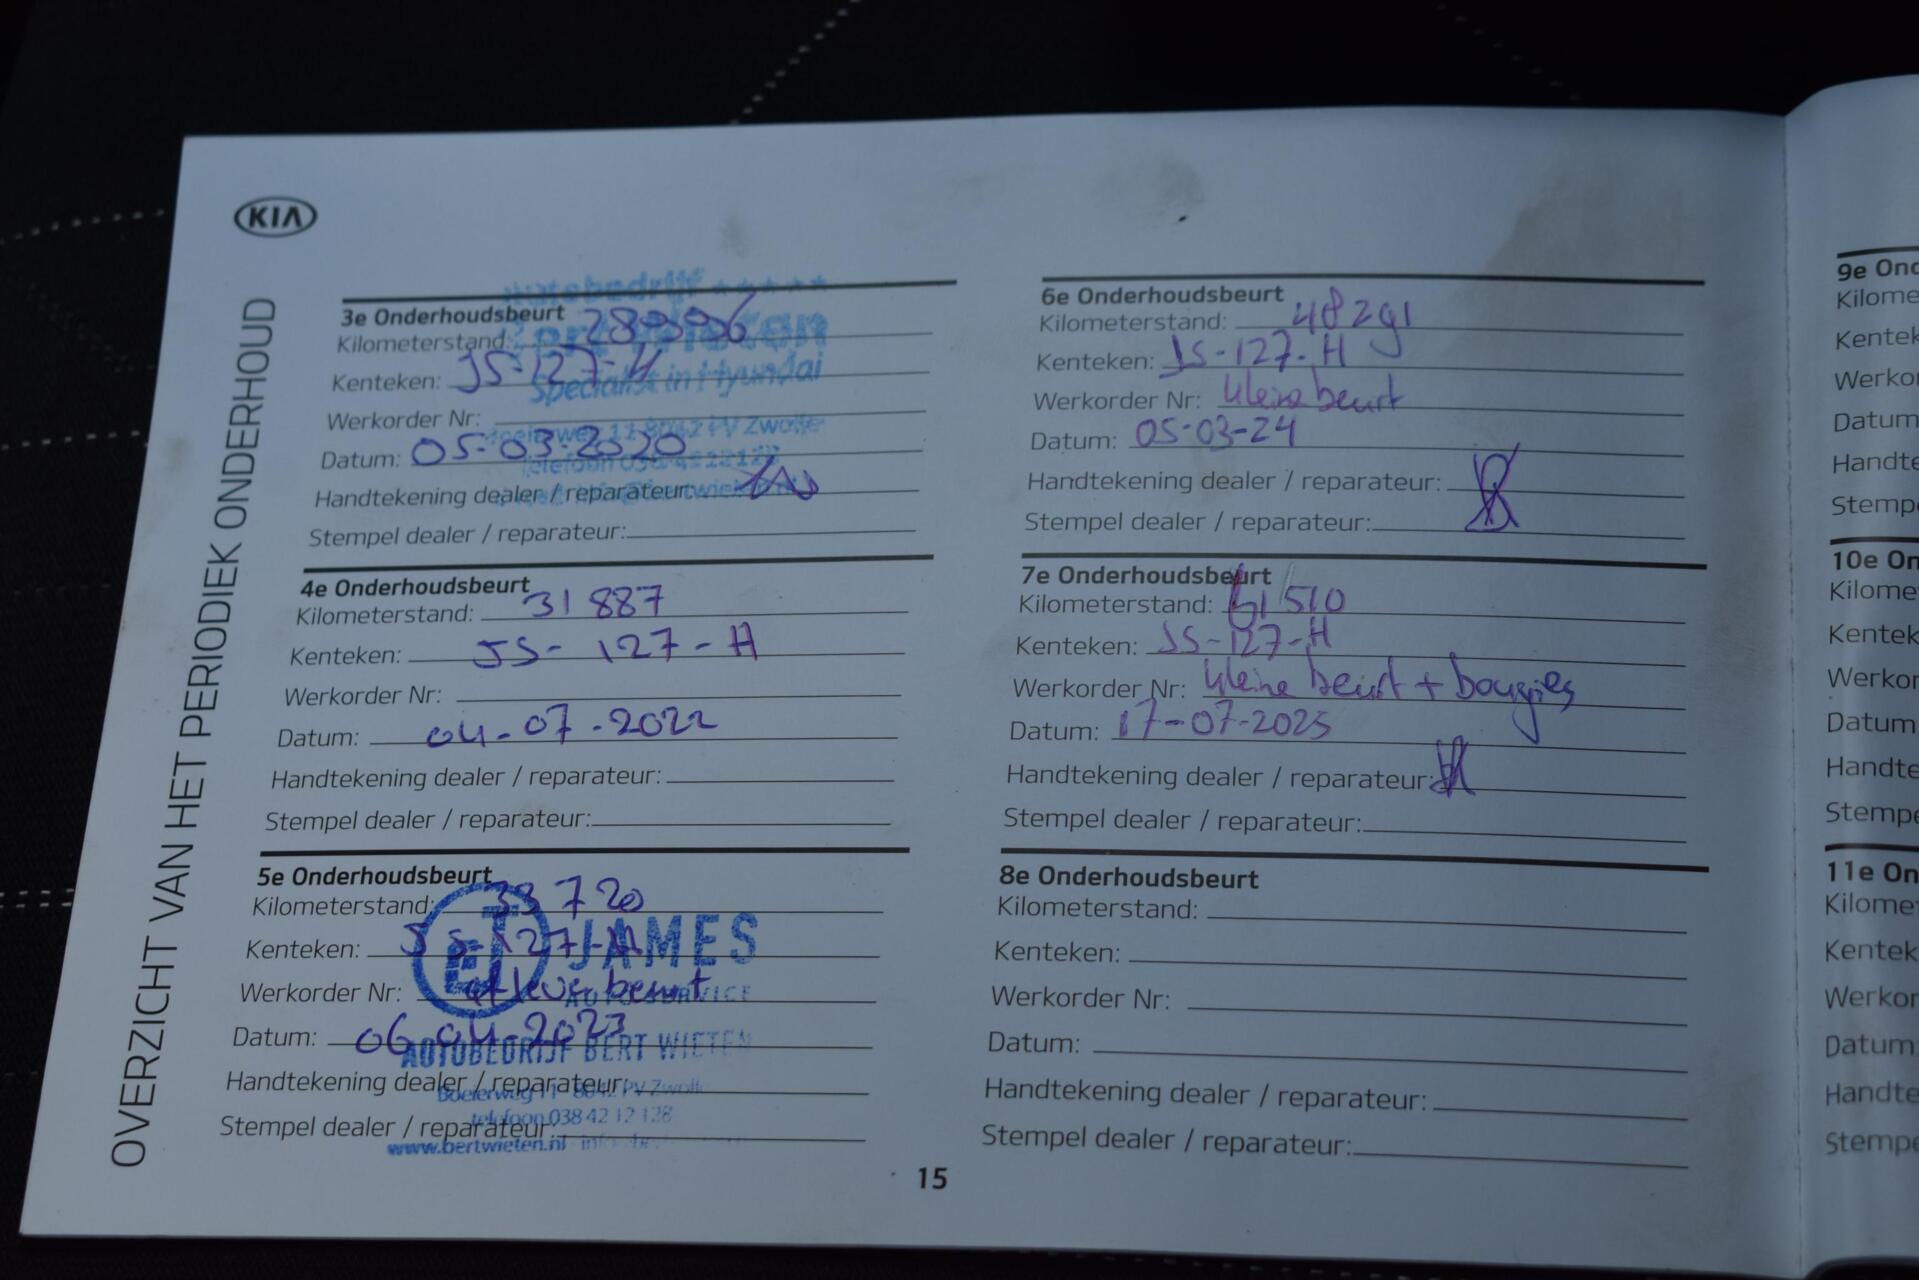 KIA
OVERZICHT VAN HET PERIODIEK ONDERHOUD
3e Onderhoudsbeurt
Kilometerstand:
Kenteken: JS-127-H
Specialist in Hyundai
Werkorder Nr:
Datum: 05-03-2020
Handtekening dealer / reparateur:
Stempel dealer / reparateur:
4e Onderhoudsbeurt
Kilometerstand: 31887
Kenteken: JS-127-H
Werkorder Nr:
Datum: 04-07-2022
Handtekening dealer / reparateur:
Stempel dealer / reparateur:
5e Onderhoudsbeurt
Kilometerstand: 33720
Kenteken: JS-127-H
JAMES
Werkorder Nr: beurt
AUTOSERVICE
Datum: 06-04-2023
AUTOBEDRIJF BERT WIETEN
Handtekening dealer / reparateur:
Boeierweg 11 8042 PV Zwolle
telefoon 038 42 12 128
Stempel dealer / reparateur:
www.bertwieten.nl
6e Onderhoudsbeurt
Kilometerstand: 48291
Kenteken: JS-127-H
Werkorder Nr: kleine beurt
Datum: 05-03-24
Handtekening dealer / reparateur:
Stempel dealer / reparateur:
7e Onderhoudsbeurt
Kilometerstand: 61510
Kenteken: JS-127-H
Werkorder Nr: kleine beurt + bougies
Datum: 17-07-2025
Handtekening dealer / reparateur:
Stempel dealer / reparateur:
8e Onderhoudsbeurt
Kilometerstand:
Kenteken:
Werkorder Nr:
Datum:
Handtekening dealer / reparateur:
Stempel dealer / reparateur:
15
9e Ond
Kilome
Kentek
Werko
Datum
Handt
Stemp
10e On
Kilome
Kentek
Werkor
Datum
Handte
Stempe
11e On
Kilome
Kentek
Werkor
Datum
Handte
Stempe